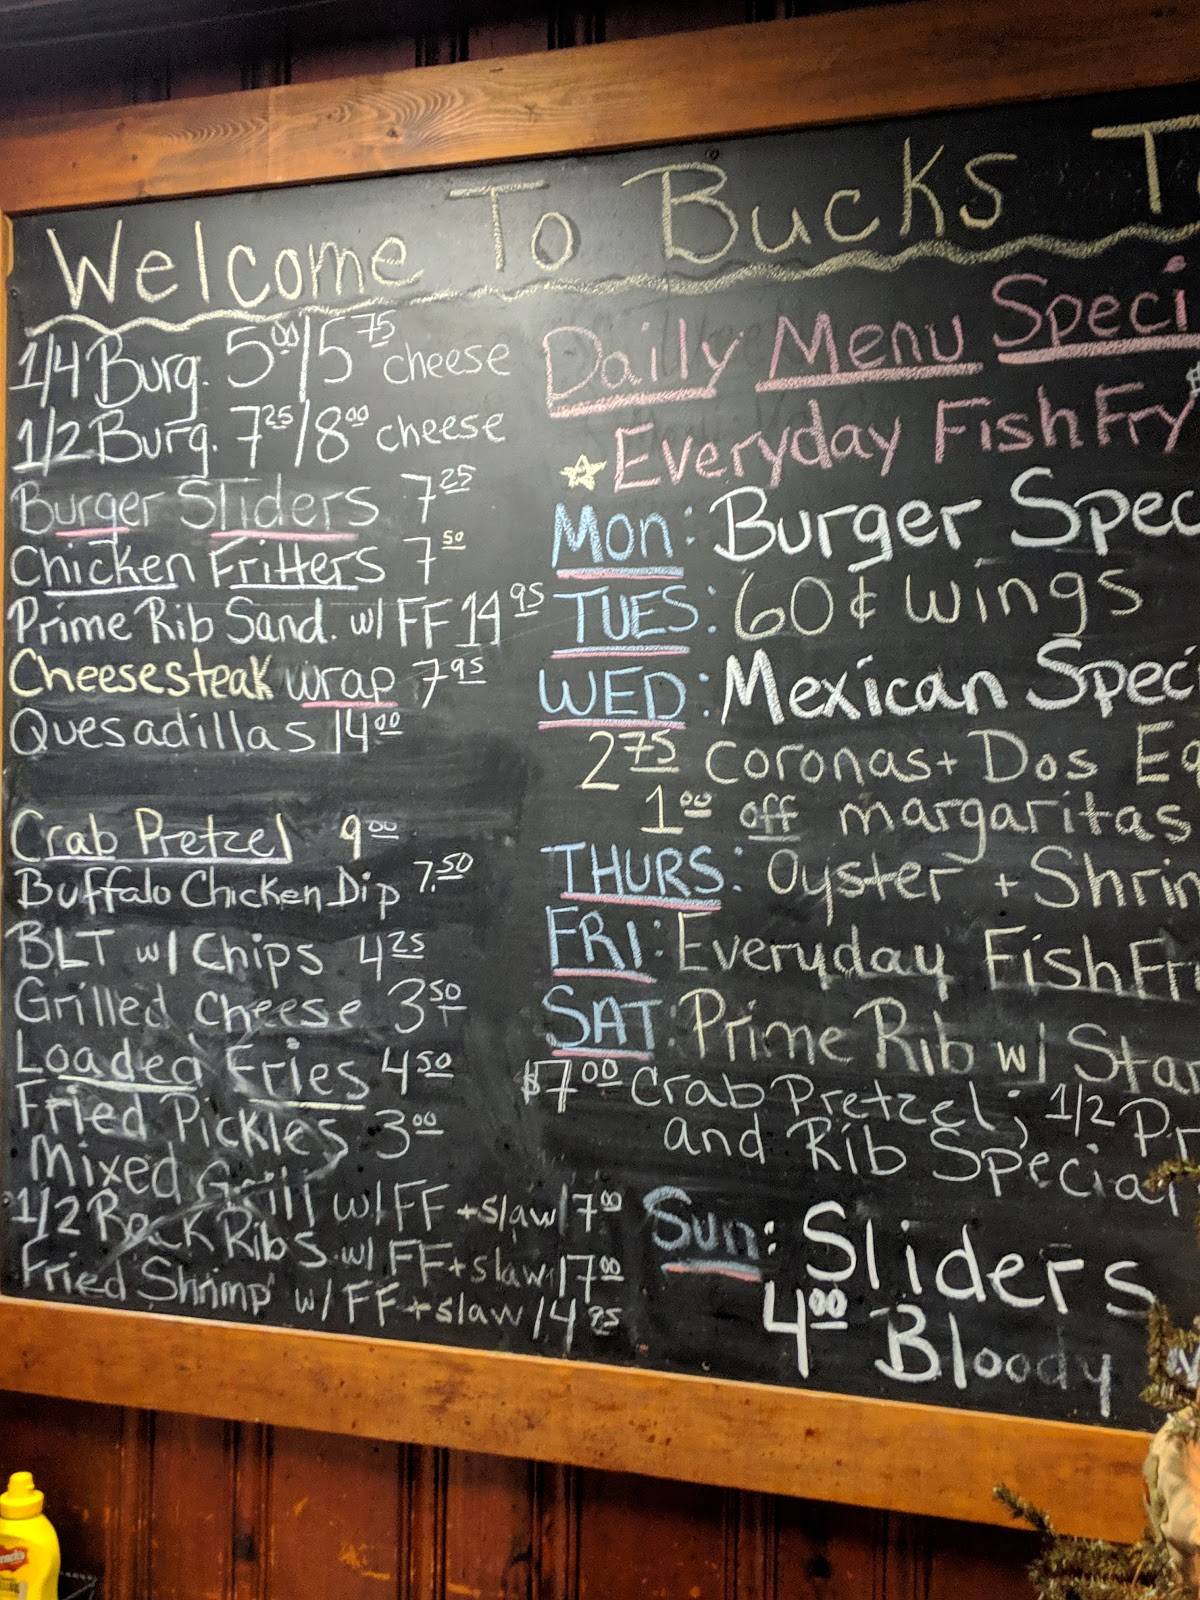 Welcome To Bucks T
1/4 Burg. 5.00/5.75 cheese
1/2 Burg. 7.25/8.00 cheese
Burger Sliders 7.25
Chicken Fritters 7.50
Prime Rib Sand. w/ FF 14.95
Cheesesteak wrap 7.95
Quesadillas 14.00
Crab Pretzel 9.00
Buffalo Chicken Dip 7.50
BLT w/ Chips 4.25
Grilled Cheese 3.50
Loaded Fries 4.50
Fried Pickles 3.00
Mixed Grill w/ FF + slaw 17.00
1/2 Rack Ribs w/ FF + slaw 17.00
Fried Shrimp w/ FF + slaw 14.95
Daily Menu Speci
Everyday Fish Fry $
Mon: Burger Spec
TUES: 60¢ wings
WED: Mexican Speci
2.75 coronas + Dos Eq
1.00 off margaritas
THURS: Oyster + Shrim
FRI: Everyday Fish Fr
SAT: Prime Rib w/ Star
$7.00 Crab Pretzel; 1/2 Pr
and Rib Special
Sun: Sliders
4.00 Bloody